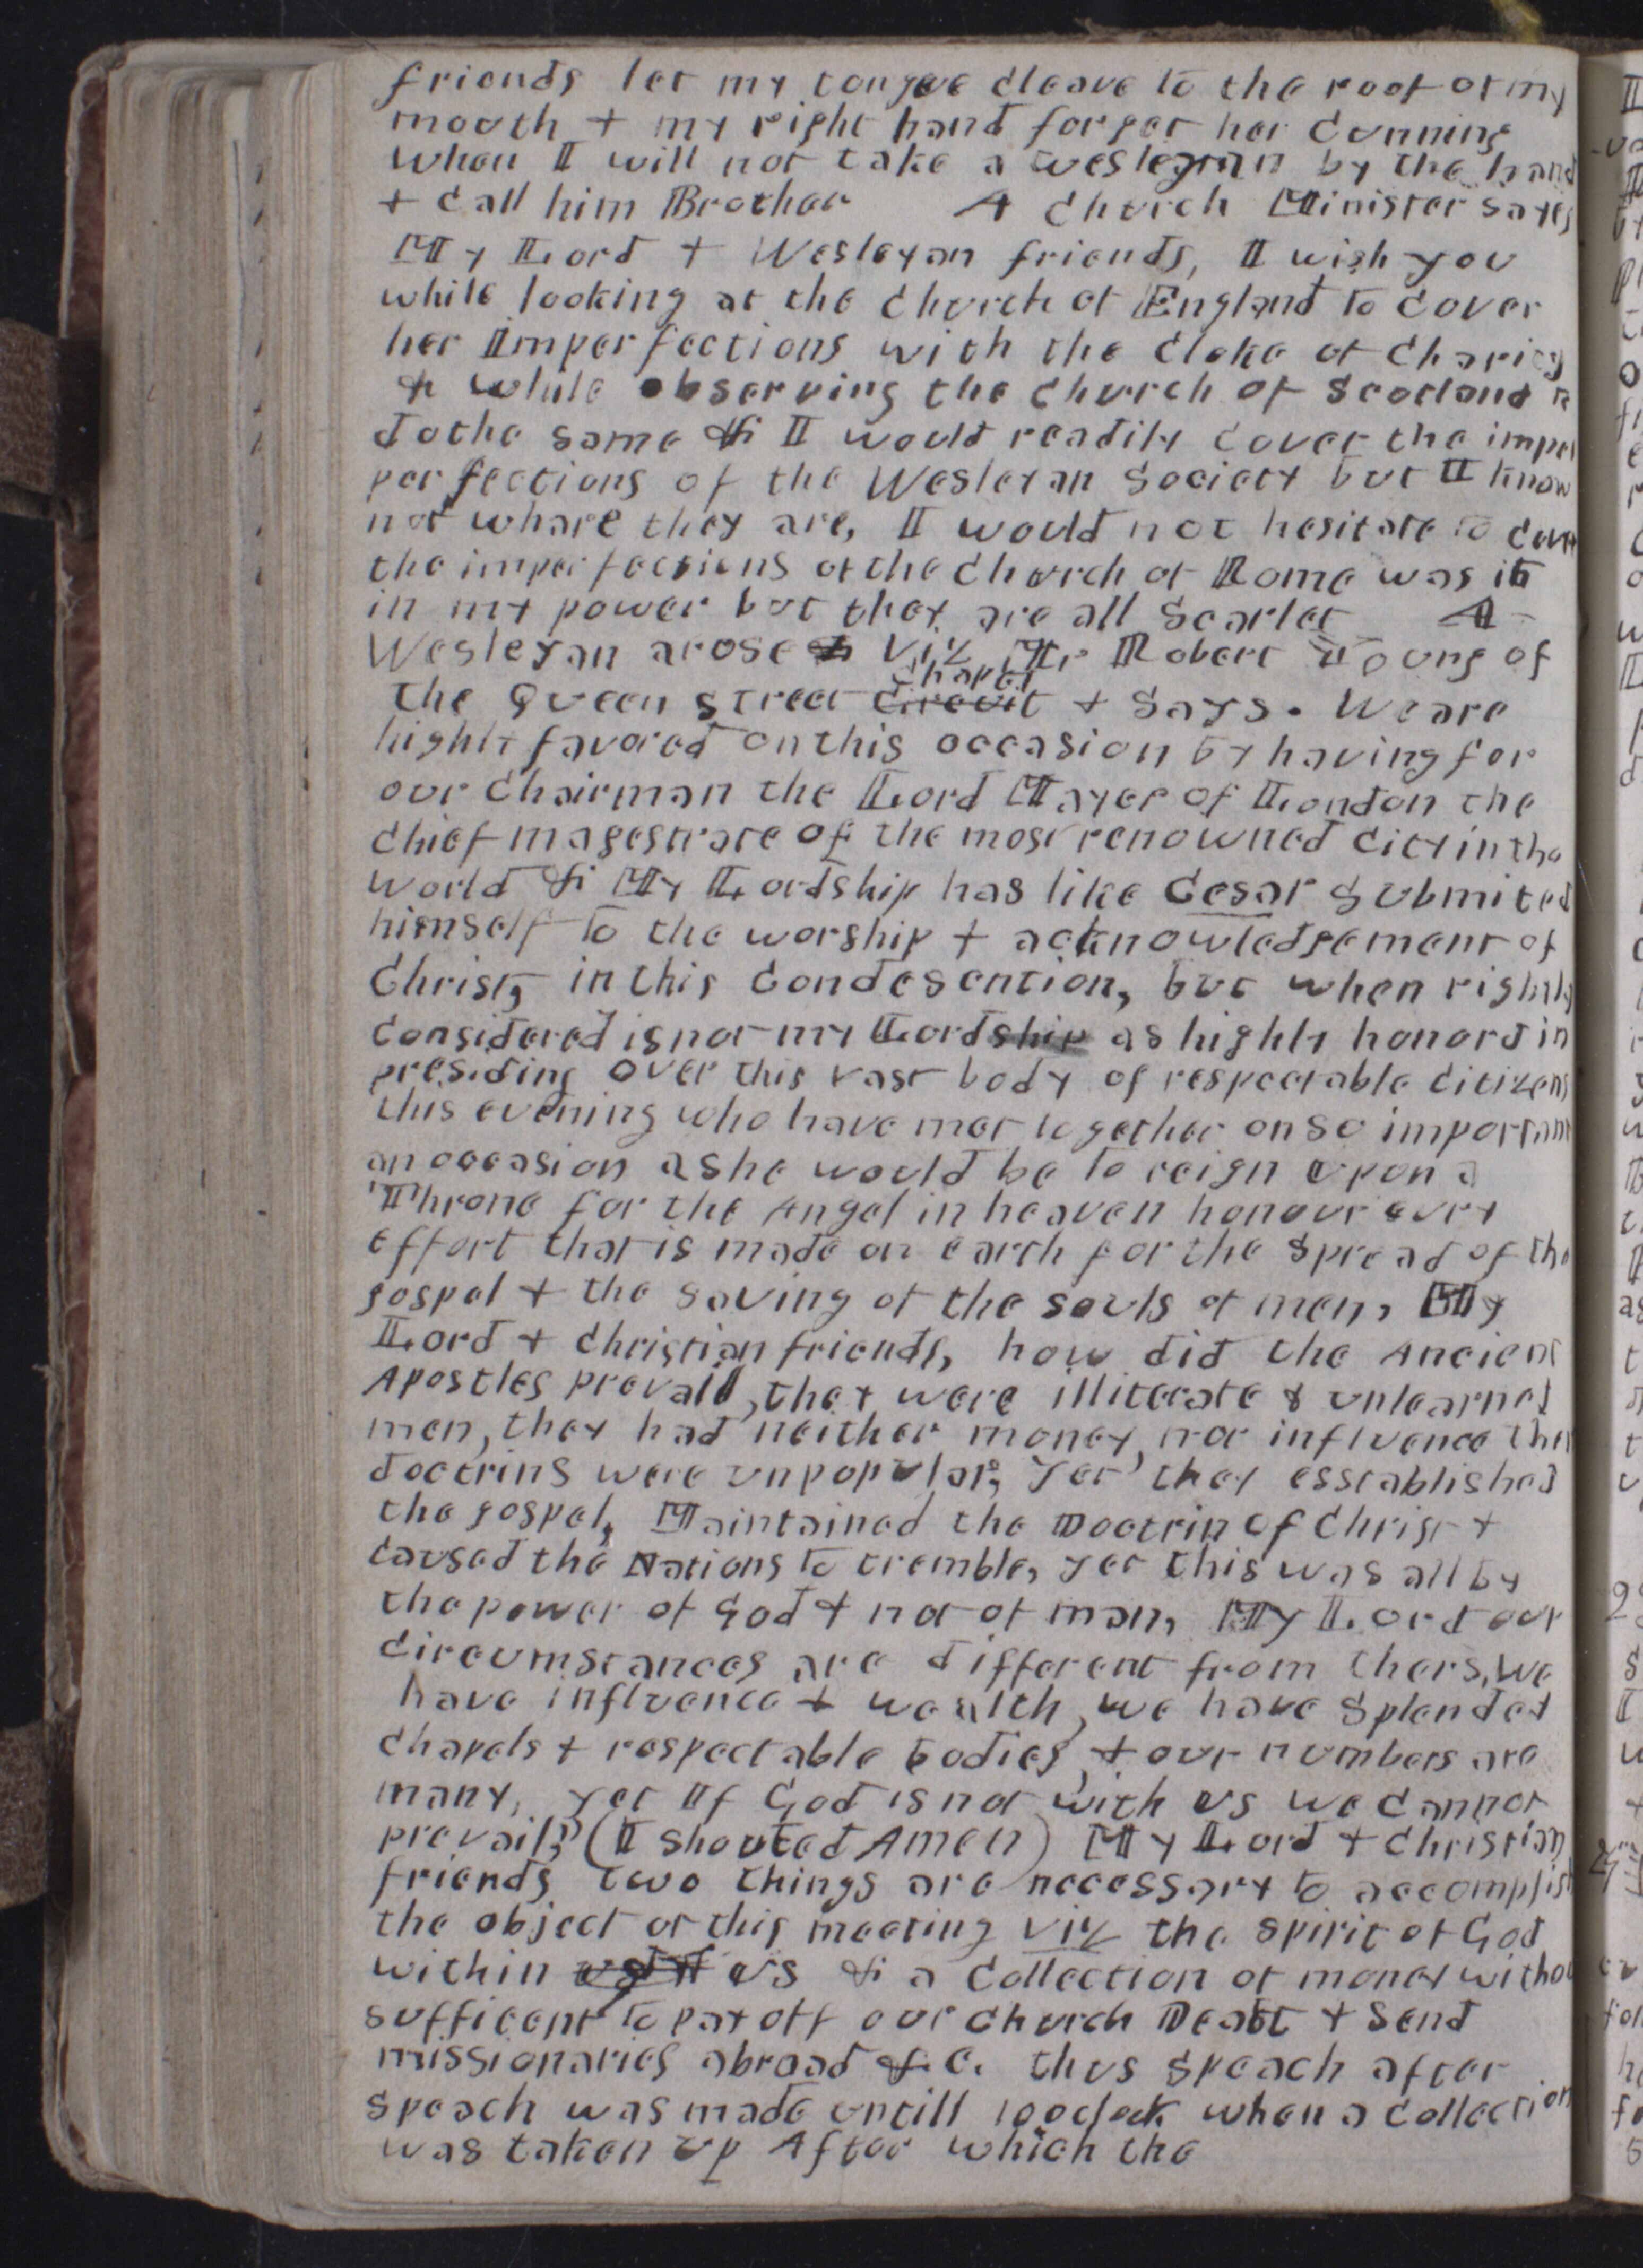 friends let my tongue cleave to the roof of my
mouth + my right hand forget her cunning
when I will not take a wesleyan by the hand
+ call him Brother A Church Minister sayes
My Lord + Wesleyan friends, I wish you
while looking at the church of England to cover
her Imperfections with the cloke of charity
& while observing the church of Scotland to
do the same & I would readily cover the imper
perfections of the Wesleyan Society but I know
not whare they are, I would not hesitate to cover
the imperfections of the church of Rome was it
in my power but they are all Scarlet A
Wesleyan arose viz Mr Robert Young of
the Queen street circuit chapel + Says. We are
highly favored on this occasion by having for
our chairman the Lord Mayer of London the
chief magestrate of the most renowned city in the
world & My Lordship has like Cesar Submited
himself to the worship + acknowledgement of
Christ, in this condesention, but when rightly
considered is not my Lordship as highly honord in
presiding over this vast body of respectable citizens
this evening who have met together on so important
an occasion as he would be to reign upon a
Throne for the Angel in heaven honour evry
effort that is made on earth for the spread of the
gospel + the saving of the souls of men, My
Lord + christian friends, how did the Ancient
Apostles prevail, they were illiterate & unlearned
men, they had neither money nor influence their
doctrins were unpopular, yet they esstablished
the gospel, Maintained the Doctrin of Christ +
caused the Nations to tremble, yet this was all by
the power of God + not of man, My Lord our
circumstances are different from thers, we
have influence + wealth, we have splended
chapels + respectable bodies, + our numbers are
many, yet If God is not with us we cannot
prevail, (I shouted Amen) My Lord + christian
friends two things are necessary to accomplish
the object of this meeting viz the spirit of God
within us & a collection of money without
sufficent to pay off our church Deabt + send
missionaries abroad &c. thus speach after
speach was made untill 10 oclock when a collection
was taken up After which the